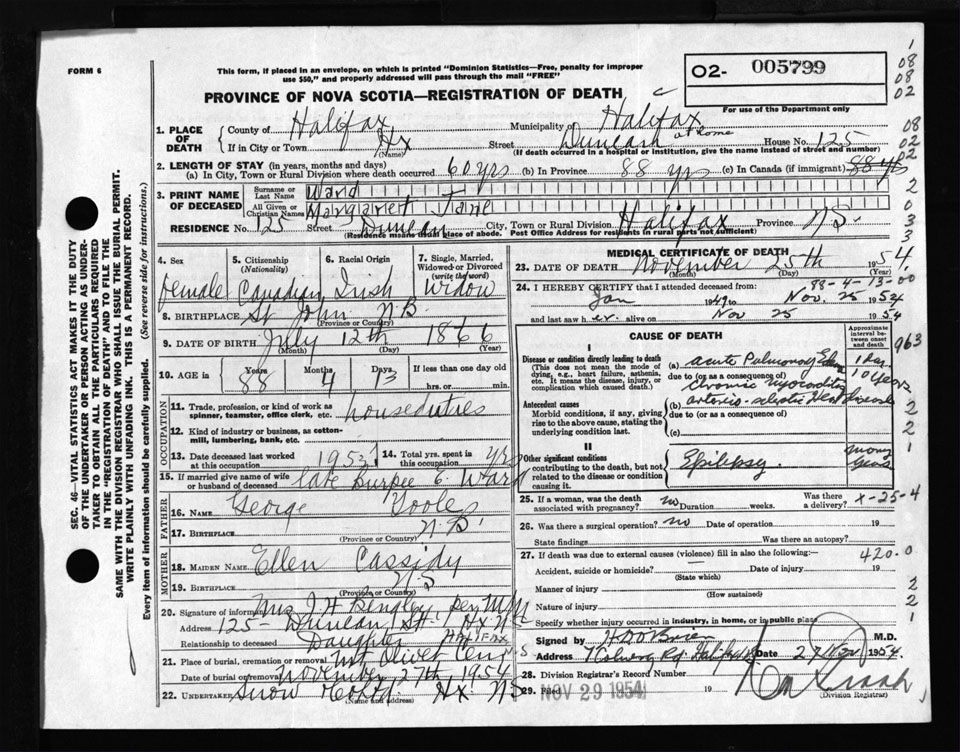 FORM 6
This form, if placed in an envelope, on which is printed "Dominion Statistics—Free, penalty for improper
use $50," and properly addressed will pass through the mail "FREE"
O2- 005799
For use of the Department only
PROVINCE OF NOVA SCOTIA—REGISTRATION OF DEATH
1. PLACE OF DEATH
County of Halifax Municipality of Halifax
If in City or Town Hx (Name) Street Duncan at home House No. 125
(If death occurred in a hospital or institution, give the name instead of street and number)
2. LENGTH OF STAY (in years, months and days)
(a) In City, Town or Rural Division where death occurred 60 yrs (b) In Province 88 yrs (c) In Canada (if immigrant) 88 yrs
3. PRINT NAME OF DECEASED
Surname or Last Name Ward
All Given or Christian Names Margaret Jane
RESIDENCE No. 125 Street Duncan City, Town or Rural Division Halifax Province N.S.
(Residence means usual place of abode. Post Office Address for residents in rural parts not sufficient)
4. Sex female
5. Citizenship (Nationality) Canadian
6. Racial Origin Irish
7. Single, Married, Widowed or Divorced (write the word) Widow
8. BIRTHPLACE St John N.B.
(Province or Country)
9. DATE OF BIRTH July 12th 1866
(Month) (Day) (Year)
10. AGE in Years 88 Months 4 Days 13 If less than one day old hrs. or min.
OCCUPATION
11. Trade, profession, or kind of work as spinner, teamster, office clerk, etc. houseduties
12. Kind of industry or business, as cotton-mill, lumbering, bank, etc.
13. Date deceased last worked at this occupation 1953 14. Total yrs. spent in this occupation yrs
15. If married give name of wife or husband of deceased late Burpee E. Ward
FATHER
16. NAME George Toole
17. BIRTHPLACE N.B.
(Province or Country)
MOTHER
18. MAIDEN NAME Ellen Cassidy
19. BIRTHPLACE N.S
(Province or Country)
20. Signature of informant Mrs J. H
Address 125 - Duncan St. Hx N.S
Relationship to deceased Daughter Halifax
21. Place of burial, cremation or removal Mt Olivet Cem
Date of burial or removal November 27th 1954
22. UNDERTAKER Snow Hx. NS
(Name and address)
MEDICAL CERTIFICATE OF DEATH
23. DATE OF DEATH November 25th 1954.
(Month) (Day) (Year)
88-4-13-00
24. I HEREBY CERTIFY that I attended deceased from:
Jan 1949 to Nov. 25 1954
and last saw her alive on Nov 25 1954
CAUSE OF DEATH
Approximate interval between onset and death
I
Disease or condition directly leading to death
(This does not mean the mode of dying, e.g., heart failure, asthenia, etc. It means the disease, injury, or complication which caused death.
(a) acute Pulmonary Edema 1 Day
due to (or as a consequence of)
chronic myocarditis 10 years
Antecedent causes
Morbid conditions, if any, giving rise to the above cause, stating the underlying condition last.
(b) arterio-sclerotic Heart Disease
due to (or as a consequence of)
(c)
II
Other significant conditions
contributing to the death, but not related to the disease or condition causing it.
Epilepsy. many years
25. If a woman, was the death associated with pregnancy? no Duration weeks. Was there a delivery?
x-25-4
26. Was there a surgical operation? no Date of operation 19
State findings Was there an autopsy?
27. If death was due to external causes (violence) fill in also the following:—
420.0
Accident, suicide or homicide? Date of injury 19
(State which)
Manner of injury
(How sustained)
Nature of injury
Specify whether injury occurred in industry, in home, or in public place
Signed by H D O'Brien M.D.
Address Halifax Date 27 Nov 1954.
28. Division Registrar's Record Number
29. Filed NOV 29 1954 19
(Division Registrar)
SEC. 46—VITAL STATISTICS ACT MAKES IT THE DUTY
OF THE UNDERTAKER OR PERSON ACTING AS UNDER-
TAKER TO OBTAIN ALL THE PARTICULARS REQUIRED
IN THE "REGISTRATION OF DEATH" AND TO FILE THE
SAME WITH THE DIVISION REGISTRAR WHO SHALL ISSUE THE BURIAL PERMIT.
WRITE PLAINLY WITH UNFADING INK. THIS IS A PERMANENT RECORD.
Every item of information should be carefully supplied. (See reverse side for instructions.)
1
08
08
02
08
02
02
2
0
3
3
963
2
2
1
2
2
1